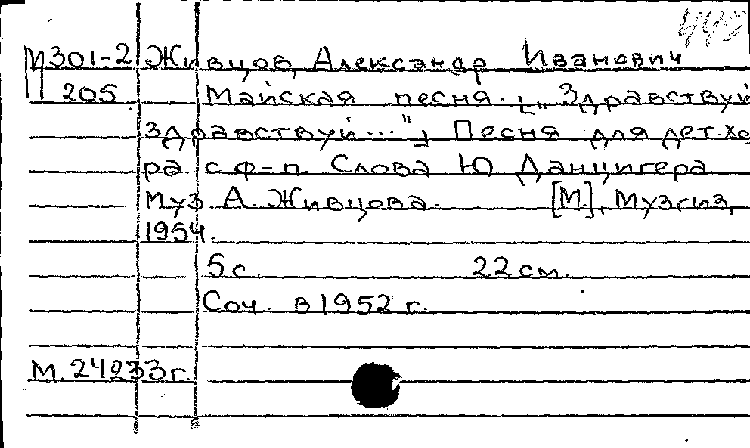 М301-2 Живцов, Александр Иванович
205 Майская песня. [„Здравствуй
здравствуй..."] Песня для дет. хо
ра с ф-п. Слова Ю Данцигера
Муз. А. Живцова. [М.], Музгиз,
1954.
5 с 22 см.
Соч. в 1952 г.